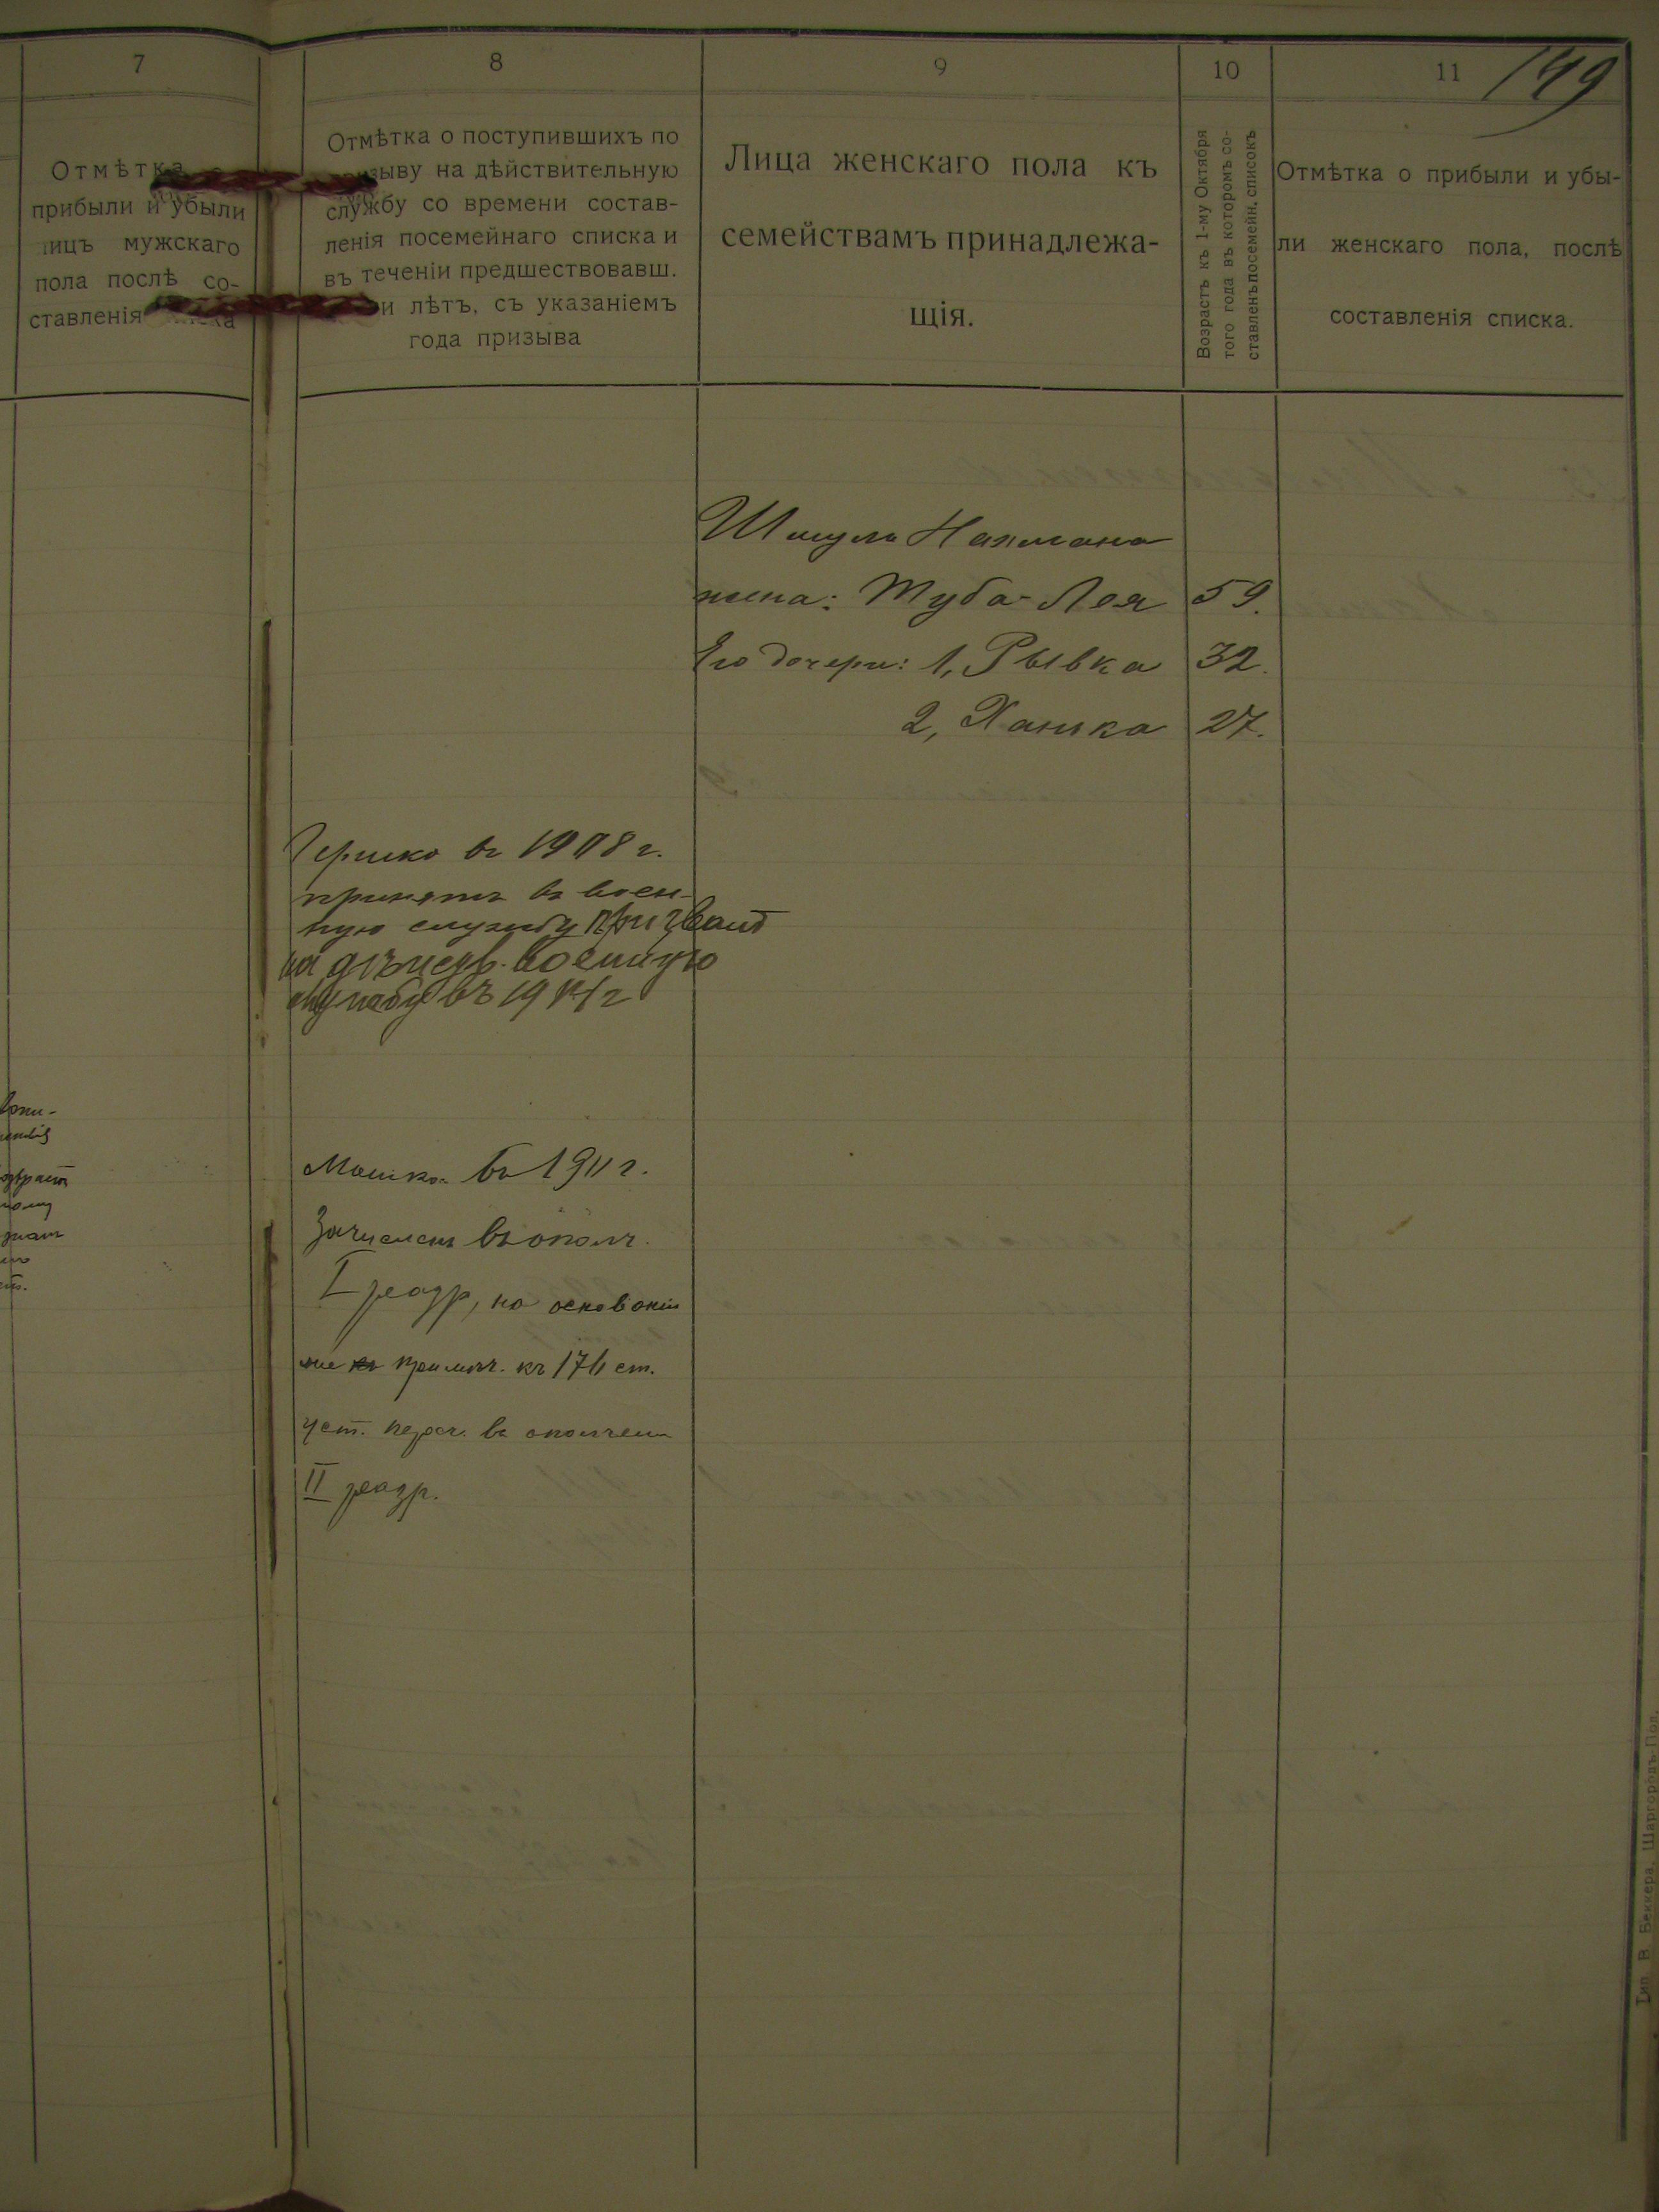 7
8
9
10
11
149
Отмѣтка
прибыли и убыли
лицъ мужскаго
пола послѣ со-
ставленія
Отмѣтка о поступившихъ по
зыву на дѣйствительную
службу со времени состав-
ленія посемейнаго списка и
въ теченіи предшествовавш.
и лѣтъ, съ указаніемъ
года призыва
Лица женскаго пола къ
семействамъ принадлежа-
щія.
Возрастъ къ 1-му Октября
того года въ которомъ со-
ставленъ посемейн. списокъ
Отмѣтка о прибыли и убы-
ли женскаго пола, послѣ
составленія списка.
Шмуля Нахмана
жена: Туба-Лея 59.
Его дочери: 1, Рывка 32.
2, Ханка 27.
Гершко въ 1908 г.
принятъ въ воен-
ную службу призванъ
на дѣйств. военную
службу въ 19 г
Мошко въ 1911 г.
Зачисленъ въ ополч.
I разр, на основаніи
примѣч. къ ст.
уст. переч. въ ополчен
II разр.
Тип. В. Беккера, Шаргородъ-Под.